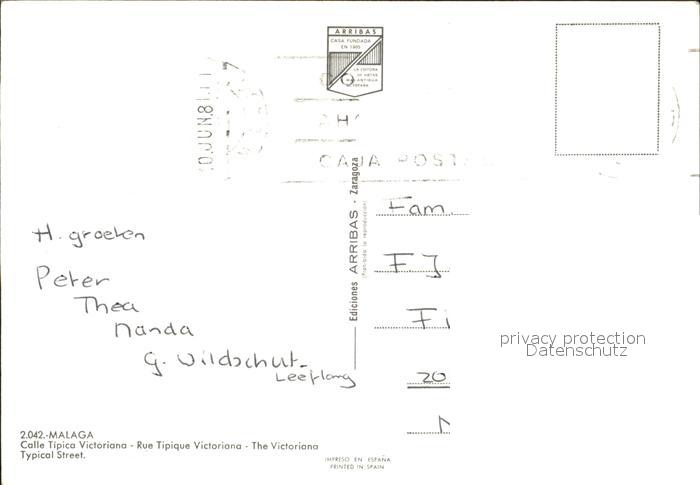 ARRIBAS
CASA FUNDADA
EN 1905
LA EDITORA
DE ARTES
MAS ANTIGUA
DE ESPAÑA
10.JUN.81
CAJA POSTAL
H. groeten
Peter
Thea
Nanda
G. Wildschut-
Leeflang
Ediciones ARRIBAS - Zaragoza
(Prohibida la reproducción)
Fam.
FJ
Fi
20
privacy protection
Datenschutz
2.042.-MALAGA
Calle Típica Victoriana - Rue Tipique Victoriana - The Victoriana
Typical Street.
IMPRESO EN ESPAÑA
PRINTED IN SPAIN